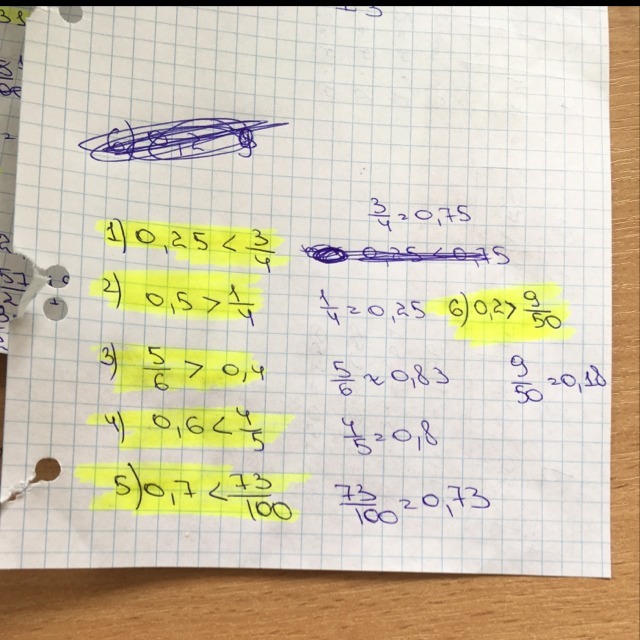 3/4 = 0,75
1) 0,25 < 3/4
2) 0,5 > 1/4
1/4 = 0,25
6) 0,2 > 9/50
3) 5/6 > 0,4
5/6 ≈ 0,83
9/50 = 0,18
4) 0,6 < 4/5
4/5 = 0,8
5) 0,7 < 73/100
73/100 = 0,73